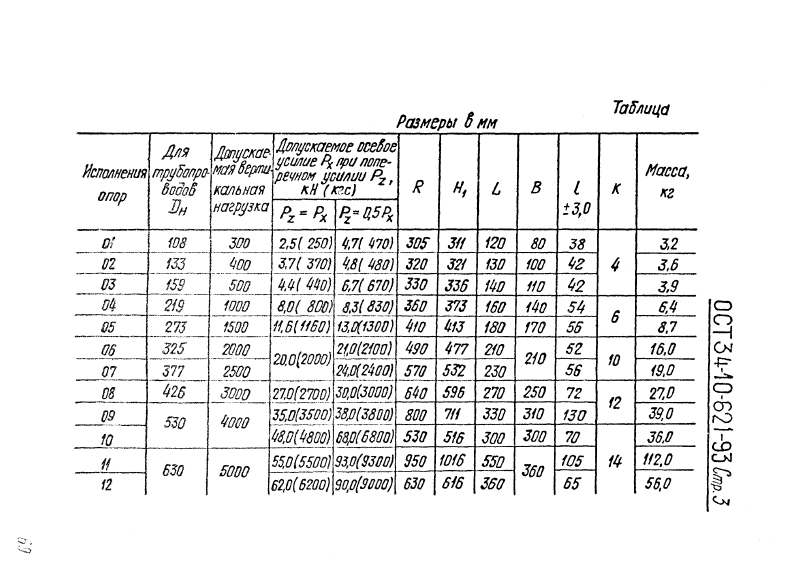 Таблица
Размеры в мм
Исполнения опор | Для трубопроводов Dн | Допускаемая вертикальная нагрузка | Допускаемое осевое усилие Pх при поперечном усилии Pz, кН (кгс) | R | H₁ | L | B | l ±3,0 | K | Масса, кг
Pz = Pх | Pz = 0,5Pх
01 108 300 2,5(250) 4,7(470) 305 311 120 80 38 4 3,2
02 133 400 3,7(370) 4,8(480) 320 321 130 100 42 3,6
03 159 500 4,4(440) 6,7(670) 330 336 140 110 42 3,9
04 219 1000 8,0(800) 8,3(830) 360 373 160 140 54 6 6,4
05 273 1500 11,6(1160) 13,0(1300) 410 413 180 170 56 8,7
06 325 2000 20,0(2000) 21,0(2100) 490 477 210 210 52 10 16,0
07 377 2500 24,0(2400) 570 532 230 56 19,0
08 426 3000 27,0(2700) 30,0(3000) 640 596 270 250 72 12 27,0
09 530 4000 35,0(3500) 38,0(3800) 800 711 330 310 130 39,0
10 48,0(4800) 68,0(6800) 530 516 300 300 70 14 36,0
11 630 5000 55,0(5500) 93,0(9300) 950 1016 550 360 105 112,0
12 62,0(6200) 90,0(9000) 630 616 360 65 56,0
ОСТ 34-10-621-93 Стр.3
69